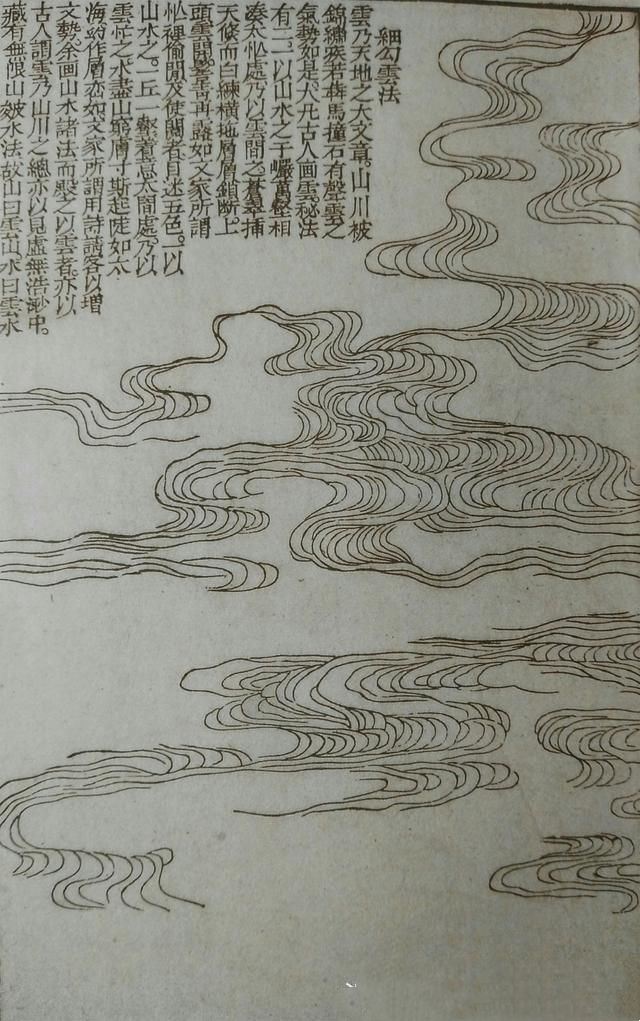 細勾雲法
雲乃天地之大文章。山川被
錦繡疾若奔馬撞石有聲雲之
氣勢如是。大凡古人画雲。秘法
有二。一以山水之千巖萬壑相
湊太忙處。乃以雲間之。蒼翠插
天倏而白練橫拖層層鎖斷。上
頭雲開。蒼髻再露如文家所謂
忙裡偷閒及使閱者目迷五色。一以
山水之一丘一壑着意太簡處乃以
雲忙之。水盡山窮膚寸斯起陡如大
海作層亦如文家所謂詩請客以增
文勢。余画山水諸法而殿之以雲者。亦以
古人謂雲乃山川之總亦以見虛無浩渺中。
藏有無限山皴水法。故山曰雲山。水曰雲水